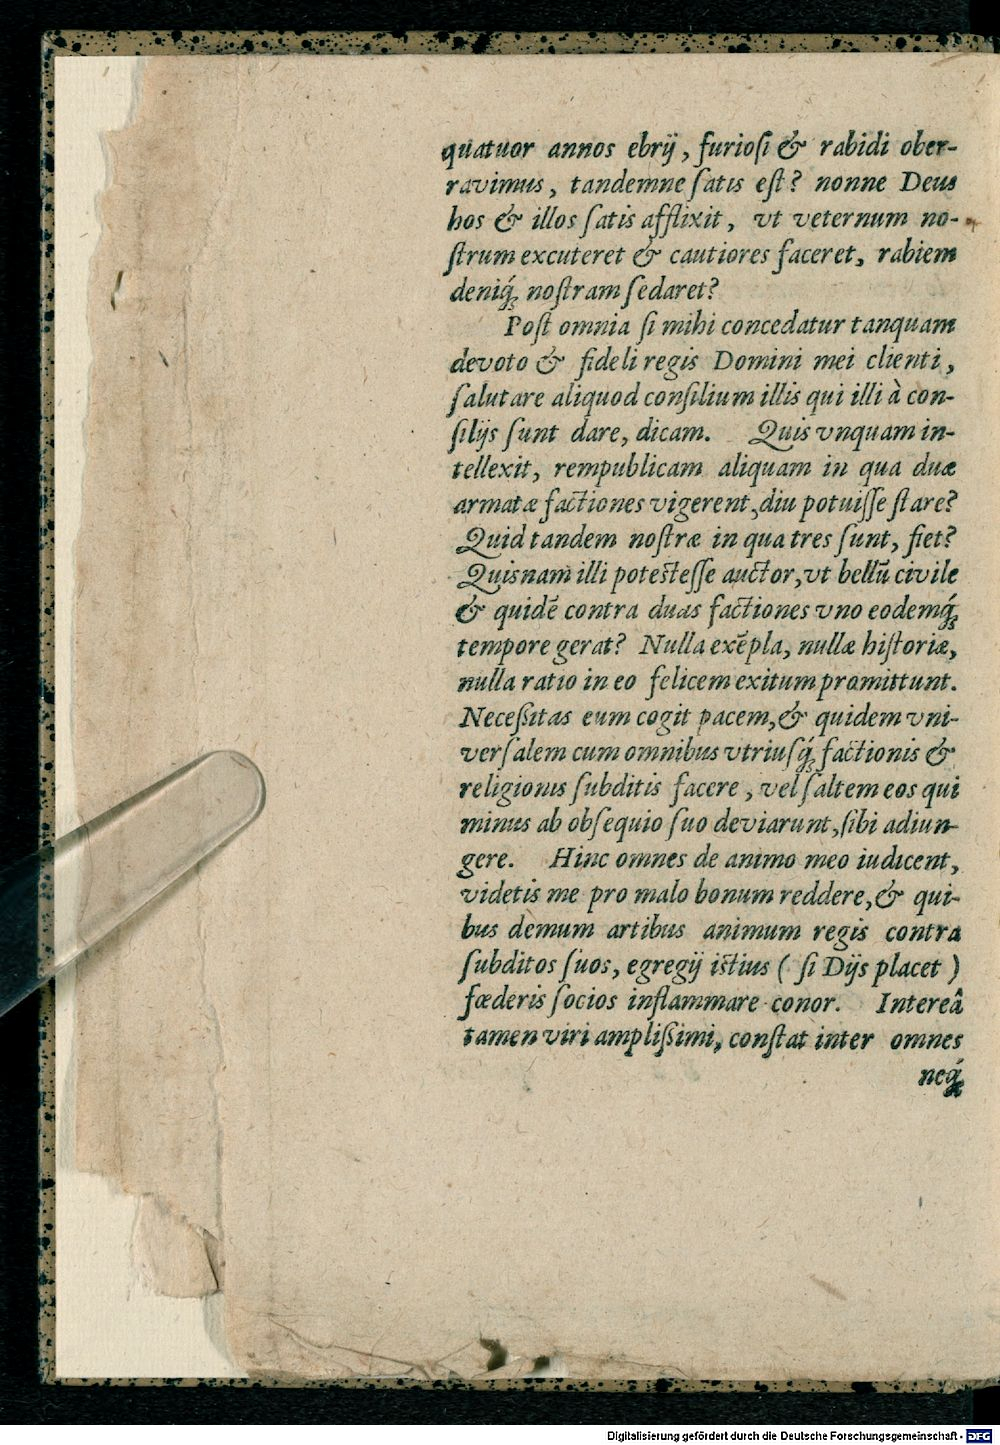 quatuor annos ebrij, furiosi & rabidi ober-
ravimus, tandemne satis est? nonne Deus
hos & illos satis afflixit, vt veternum no-
strum excuteret & cautiores faceret, rabiem
deniq́; nostram sedaret?
Post omnia si mihi concedatur tanquam
devoto & fideli regis Domini mei clienti,
salutare aliquod consilium illis qui illi à con-
silijs sunt dare, dicam. Quis vnquam in-
tellexit, rempublicam aliquam in qua duæ
armatæ factiones vigerent, diu potuisse stare?
Quid tandem nostræ in qua tres sunt, fiet?
Quisnam illi potest esse auctor, vt bellũ civile
& quidẽ contra duas factiones vno eodemq́;
tempore gerat? Nulla exẽpla, nullæ historiæ,
nulla ratio in eo felicem exitum promittunt.
Necessitas eum cogit pacem, & quidem vni-
versalem cum omnibus vtriusq́; factionis &
religionis subditis facere, vel saltem eos qui
minus ab obsequio suo deviarunt, sibi adiun-
gere. Hinc omnes de animo meo iudicent,
videtis me pro malo bonum reddere, & qui-
bus demum artibus animum regis contra
subditos suos, egregij istius ( si Dijs placet )
fœderis socios inflammare conor. Intereâ
tamen viri amplissimi, constat inter omnes
neq́;
Digitalisierung gefördert durch die Deutsche Forschungsgemeinschaft - DFG